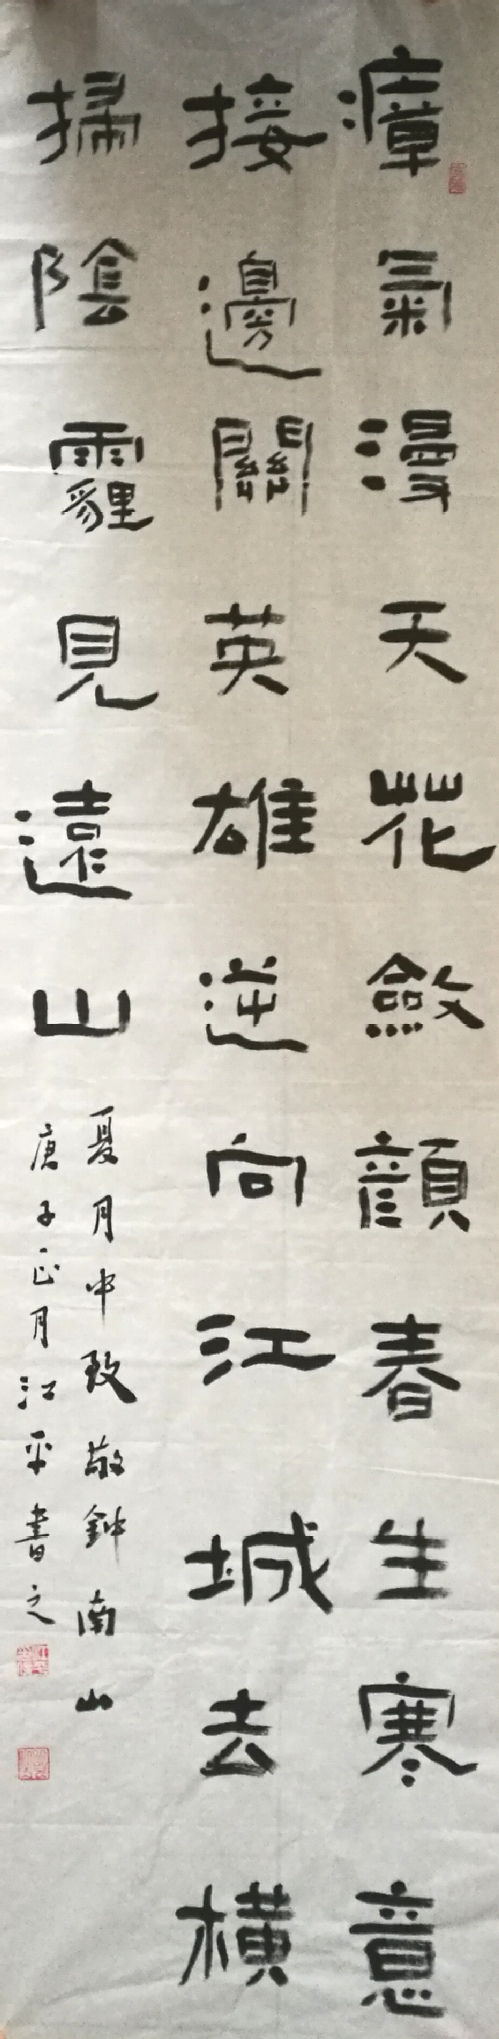 瘴氣漫天花斂顔春生寒意
接邊關英雄逆向江城去橫
掃陰霾見遠山
夏月中致敬鈡南山
庚子正月江平書之